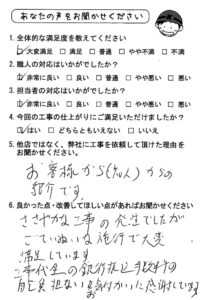 あなたの声をお聞かせください
1. 全体的な満足度を教えてください
☑大変満足 □満足 □普通 □やや不満 □不満
2. 職人の対応はいかがでしたか?
☑非常に良い □良い □普通 □やや悪い □悪い
3. 担当者の対応はいかがでしたか?
☑非常に良い □良い □普通 □やや悪い □悪い
4. 今回の工事の仕上がりにご満足いただけましたか?
☑はい □どちらともいえない □いいえ
5. 他店ではなく、弊社に工事を依頼して頂けた理由を
お聞かせください。
お客様から(知人)からの
紹介です。
6. 良かった点・改善してほしい点があればお聞かせください
ささやかな工事の発注でしたが
ごていねいな施行で大変
満足しています
工事代金の銀行振込手数料の
自己負担ない お気付かいに感謝しています